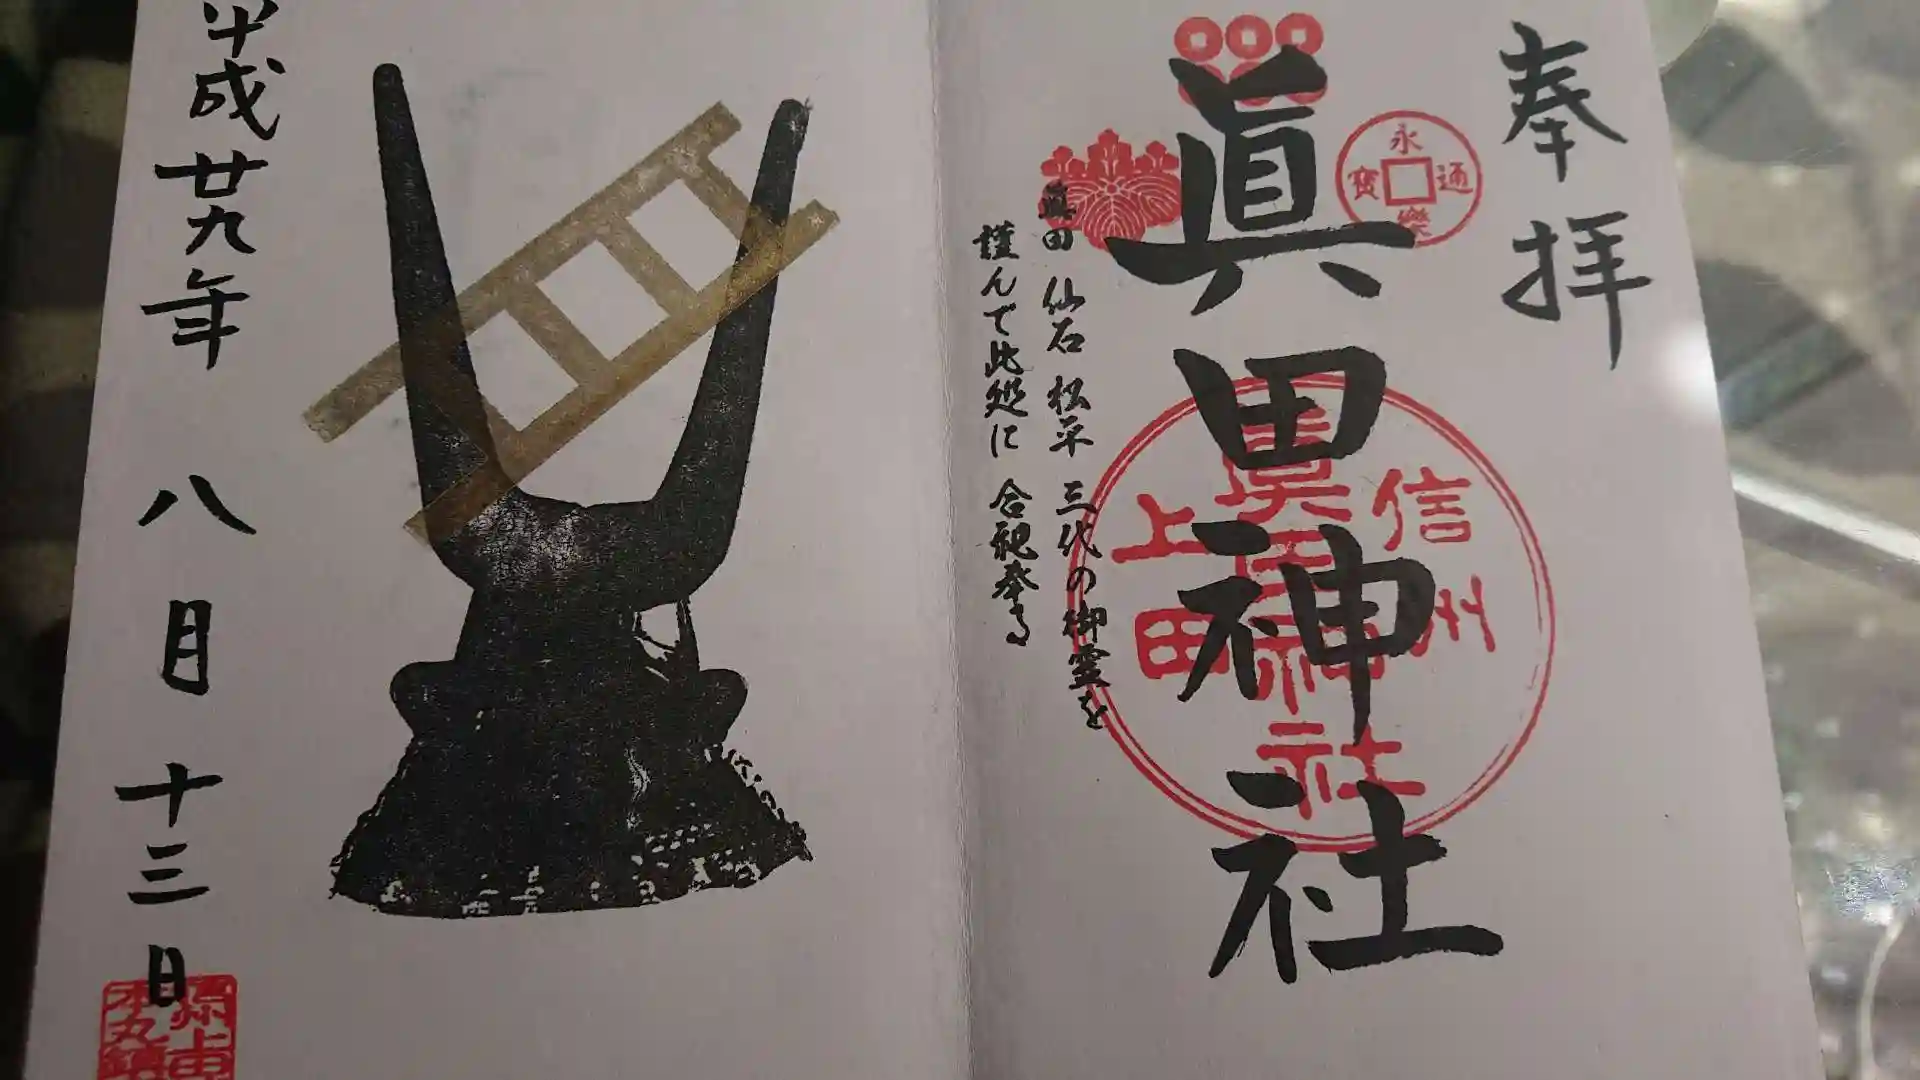 奉拝
永
通
寳
樂
眞田神社
信州
上田
眞田神社
眞田 仙石 松平 三代の御霊を
謹んで此処に 合祀奉る
平成廿九年 八月 十三日